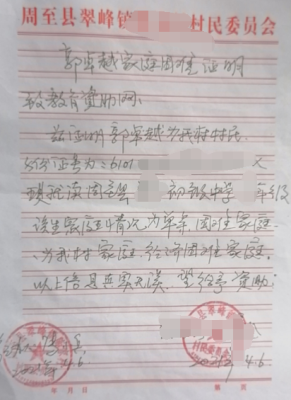 周至县翠峰镇 村民委员会
郭卓越家庭困难证明
致教育资助网:
兹证明郭卓越为我村村民
身份证号为:6101
现就读周至县 初级中学 年级
该生家庭情况为单亲困难家庭
为我村家庭经济困难家庭。
以上信息真实无误,望给予资助。
4.6
4.6
年 月 日